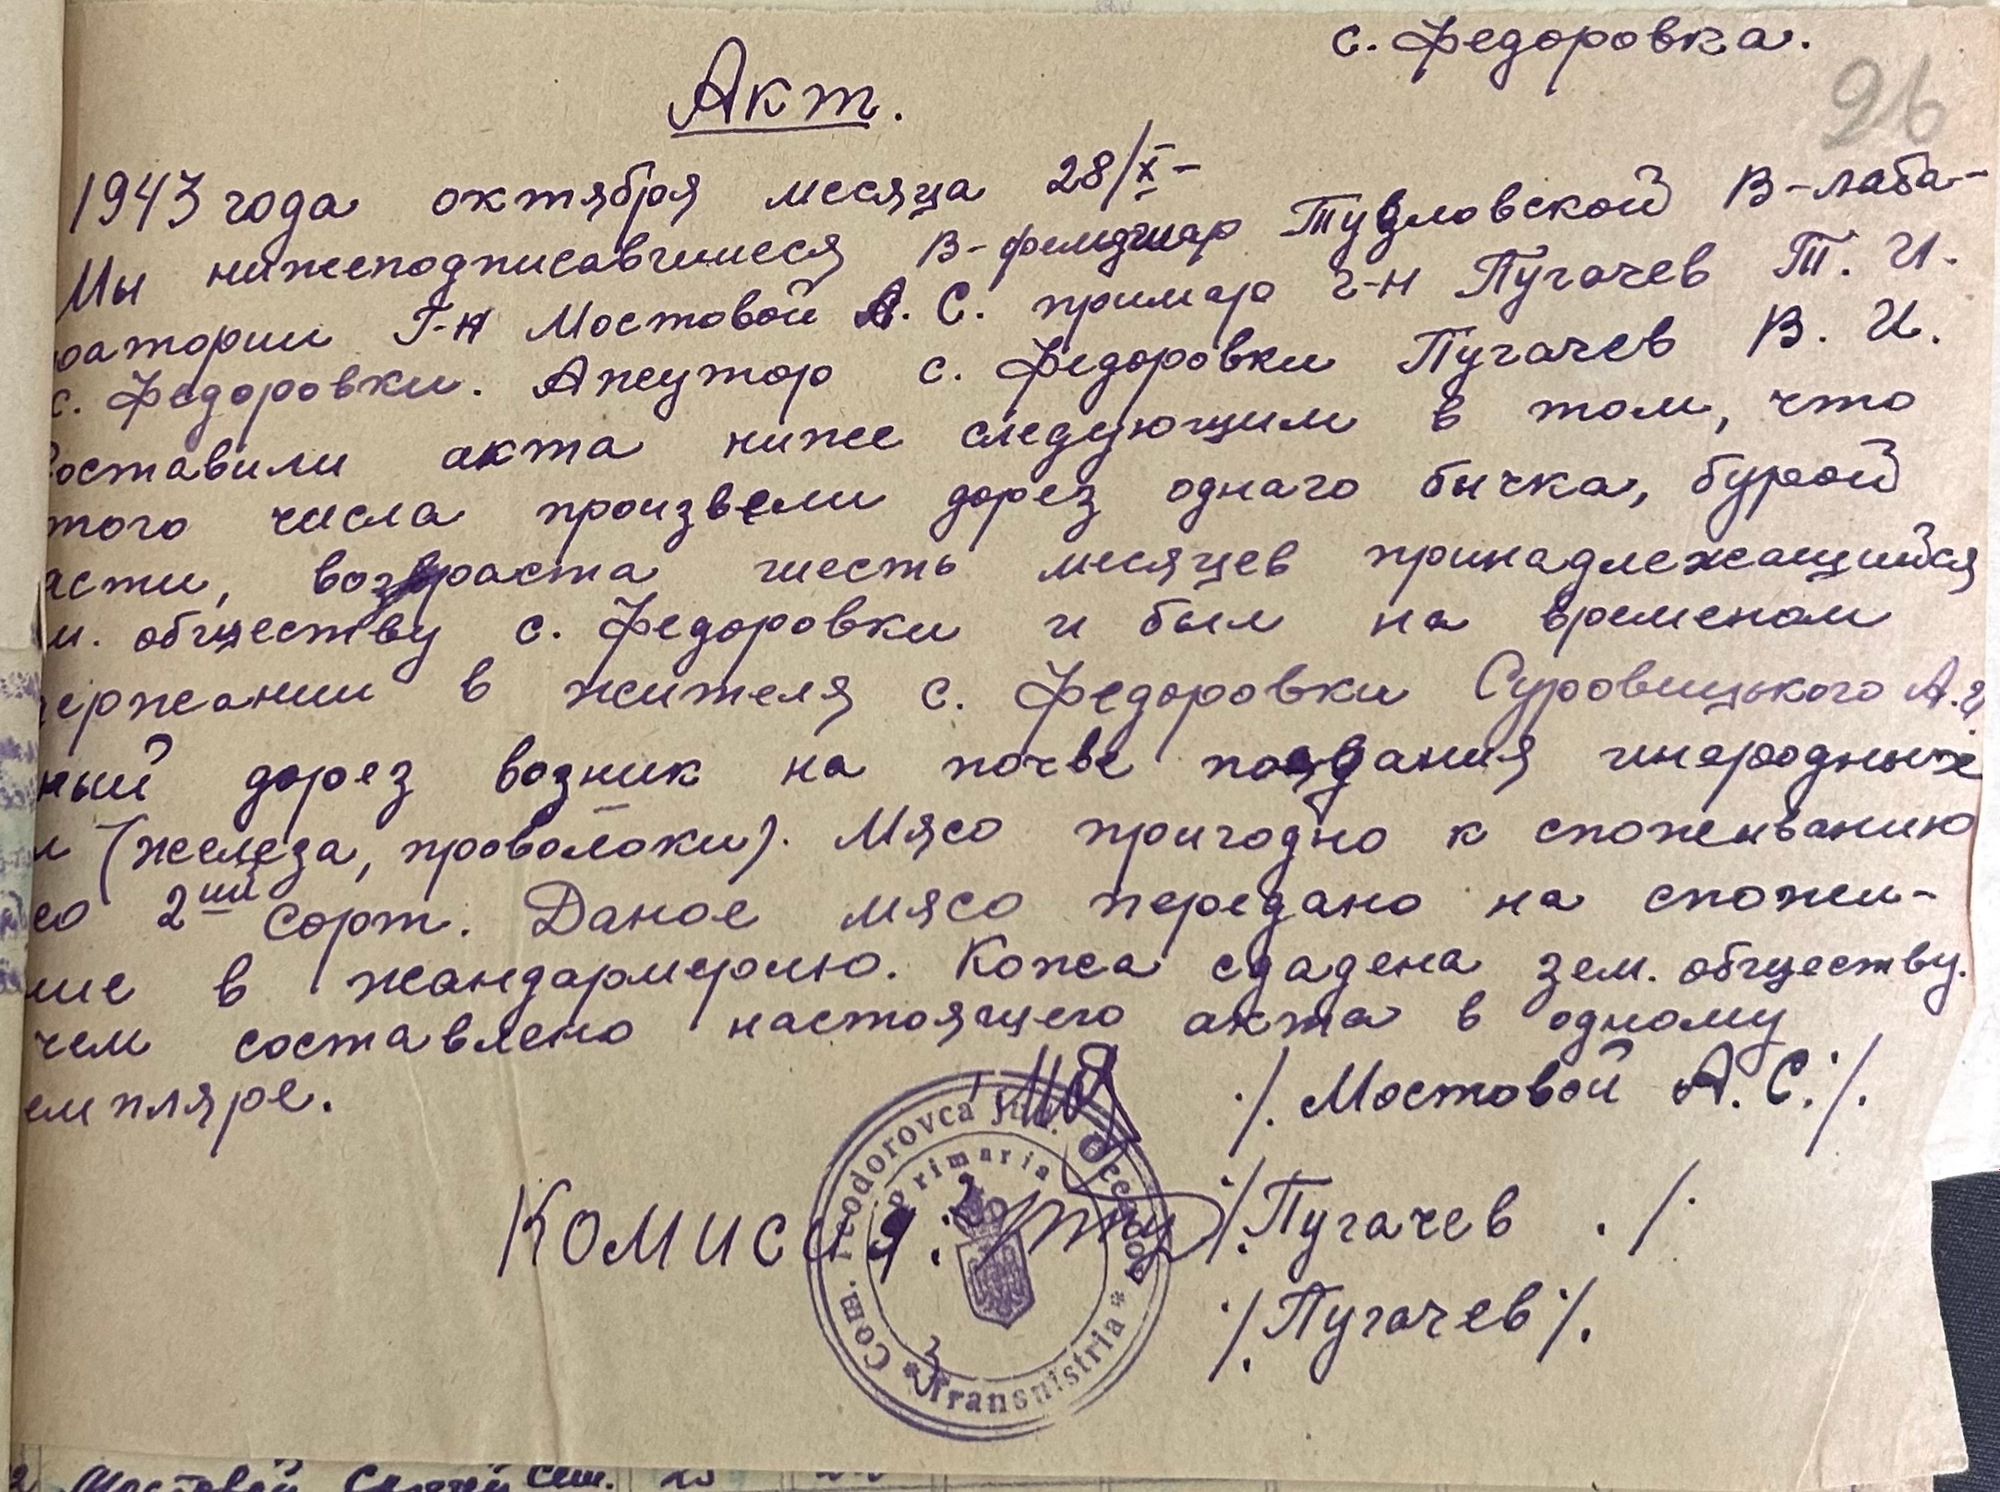 с. Федоровка.
26
Акт.
1943 года октября месяца 28/X-
Мы нижеподписавшиеся В-фельдшар Тузловской В-лаба-
ратории Г-н Мостовой А. С. примар г-н Пугачев Т. И.
с. Федоровки. Ажутор с. Федоровки Пугачев В. И.
составили акта ниже следующим в том, что
того числа произвели дорез однаго бычка, бурой
асти, возраста шесть месяцев принадлежащийся
м. обществу с. Федоровки и был на временом
держании в жителя с. Федоровки Суровицького А.
ный дорез возник на почве поядания инародных
л (железа, проволоки). Мясо пригодно к споживанию
со 2ий сорт. Даное мясо передано на спожи-
ние в жандармерлю. Кожа сдадена зем. обществу.
чем составлено настоящего акта в одному
емпляре.
/. Мостовой А. С. /.
Комисия. /. Пугачев . /.
/. Пугачев /.
Com. Feodorovca Jud. Oceacov
Primaria
* Transnistria *
Мостовой Сергей Сем. 23